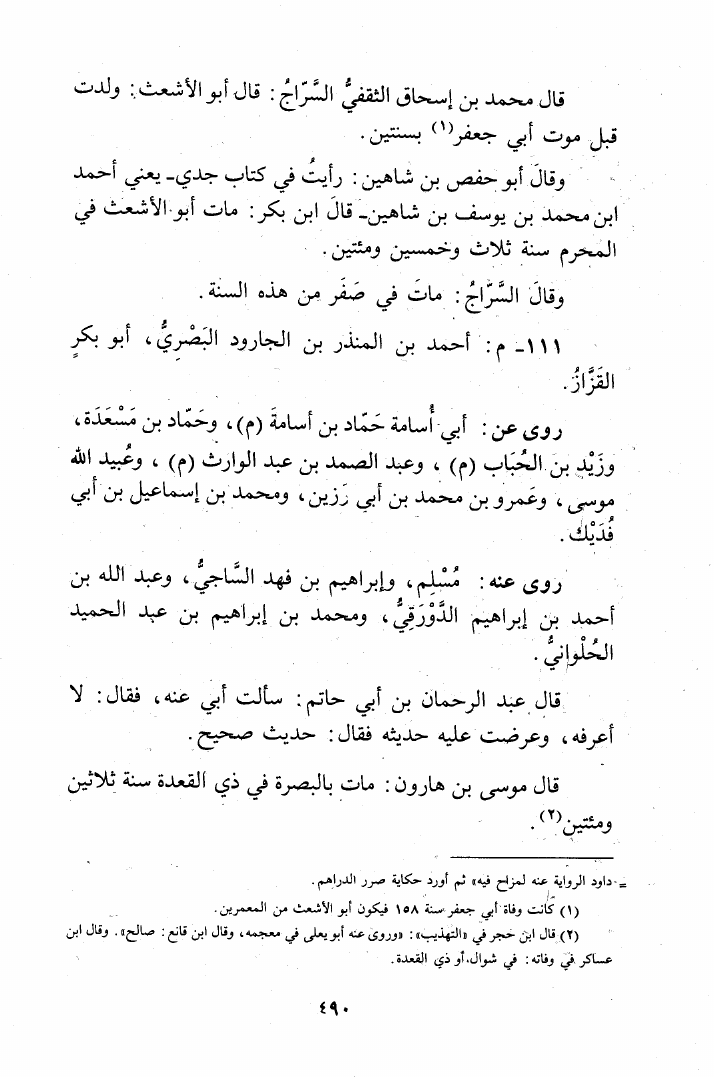 قال محمد بن إسحاق الثقفيُّ السَّرّاجُ: قال أبو الأشعث: ولدت
قبل موت أبي جعفر(١) بسنتين.
وقالَ أبو حفص بن شاهين: رأيتُ في كتاب جدي ـ يعني أحمد
ابن محمد بن يوسف بن شاهين ـ قالَ ابن بكر: مات أبو الأشعث في
المحرم سنة ثلاث وخمسين ومئتين.
وقالَ السَّرّاجُ: ماتَ في صَفَر مِن هذه السنة.
١١١ ـ م: أحمد بن المنذر بن الجارود البَصْرِيُّ، أبو بكرٍ
القَزَّازُ.
روى عن: أبي أُسامة حَمّاد بن أسامةَ (م)، وحَمّاد بن مَسْعَدَة،
وزَيْدِ بنِ الحُبَاب (م)، وعبد الصمد بن عبد الوارث (م)، وعُبيد الله
موسى، وعَمرو بن محمد بن أبي رَزين، ومحمد بن إسماعيل بن أبي
فُدَيْك.
روى عنه: مُسْلِم، وإبراهيم بن فهد السَّاجيُّ، وعبد الله بن
أحمد بن إبراهيم الدَّوْرَقِيُّ، ومحمد بن إبراهيم بن عبد الحميد
الحُلْوانيُّ.
قال عبد الرحمان بن أبي حاتم: سألت أبي عنه، فقال: لا
أعرفه، وعرضت عليه حديثه فقال: حديث صحيح.
قال موسى بن هارون: مات بالبصرة في ذي القعدة سنة ثلاثين
ومئتين(٢).
= داود الرواية عنه لمزاح فيه» ثم أورد حكاية صرر الدراهم.
(١) كانت وفاة أبي جعفر سنة ١٥٨ فيكون أبو الأشعث من المعمرين.
(٢) قال ابن حجر في «التهذيب»: «وروى عنه أبو يعلى في معجمه، وقال ابن قانع: صالح». وقال ابن
عساكر في وفاته: في شوال، أو ذي القعدة.
٤٩٠